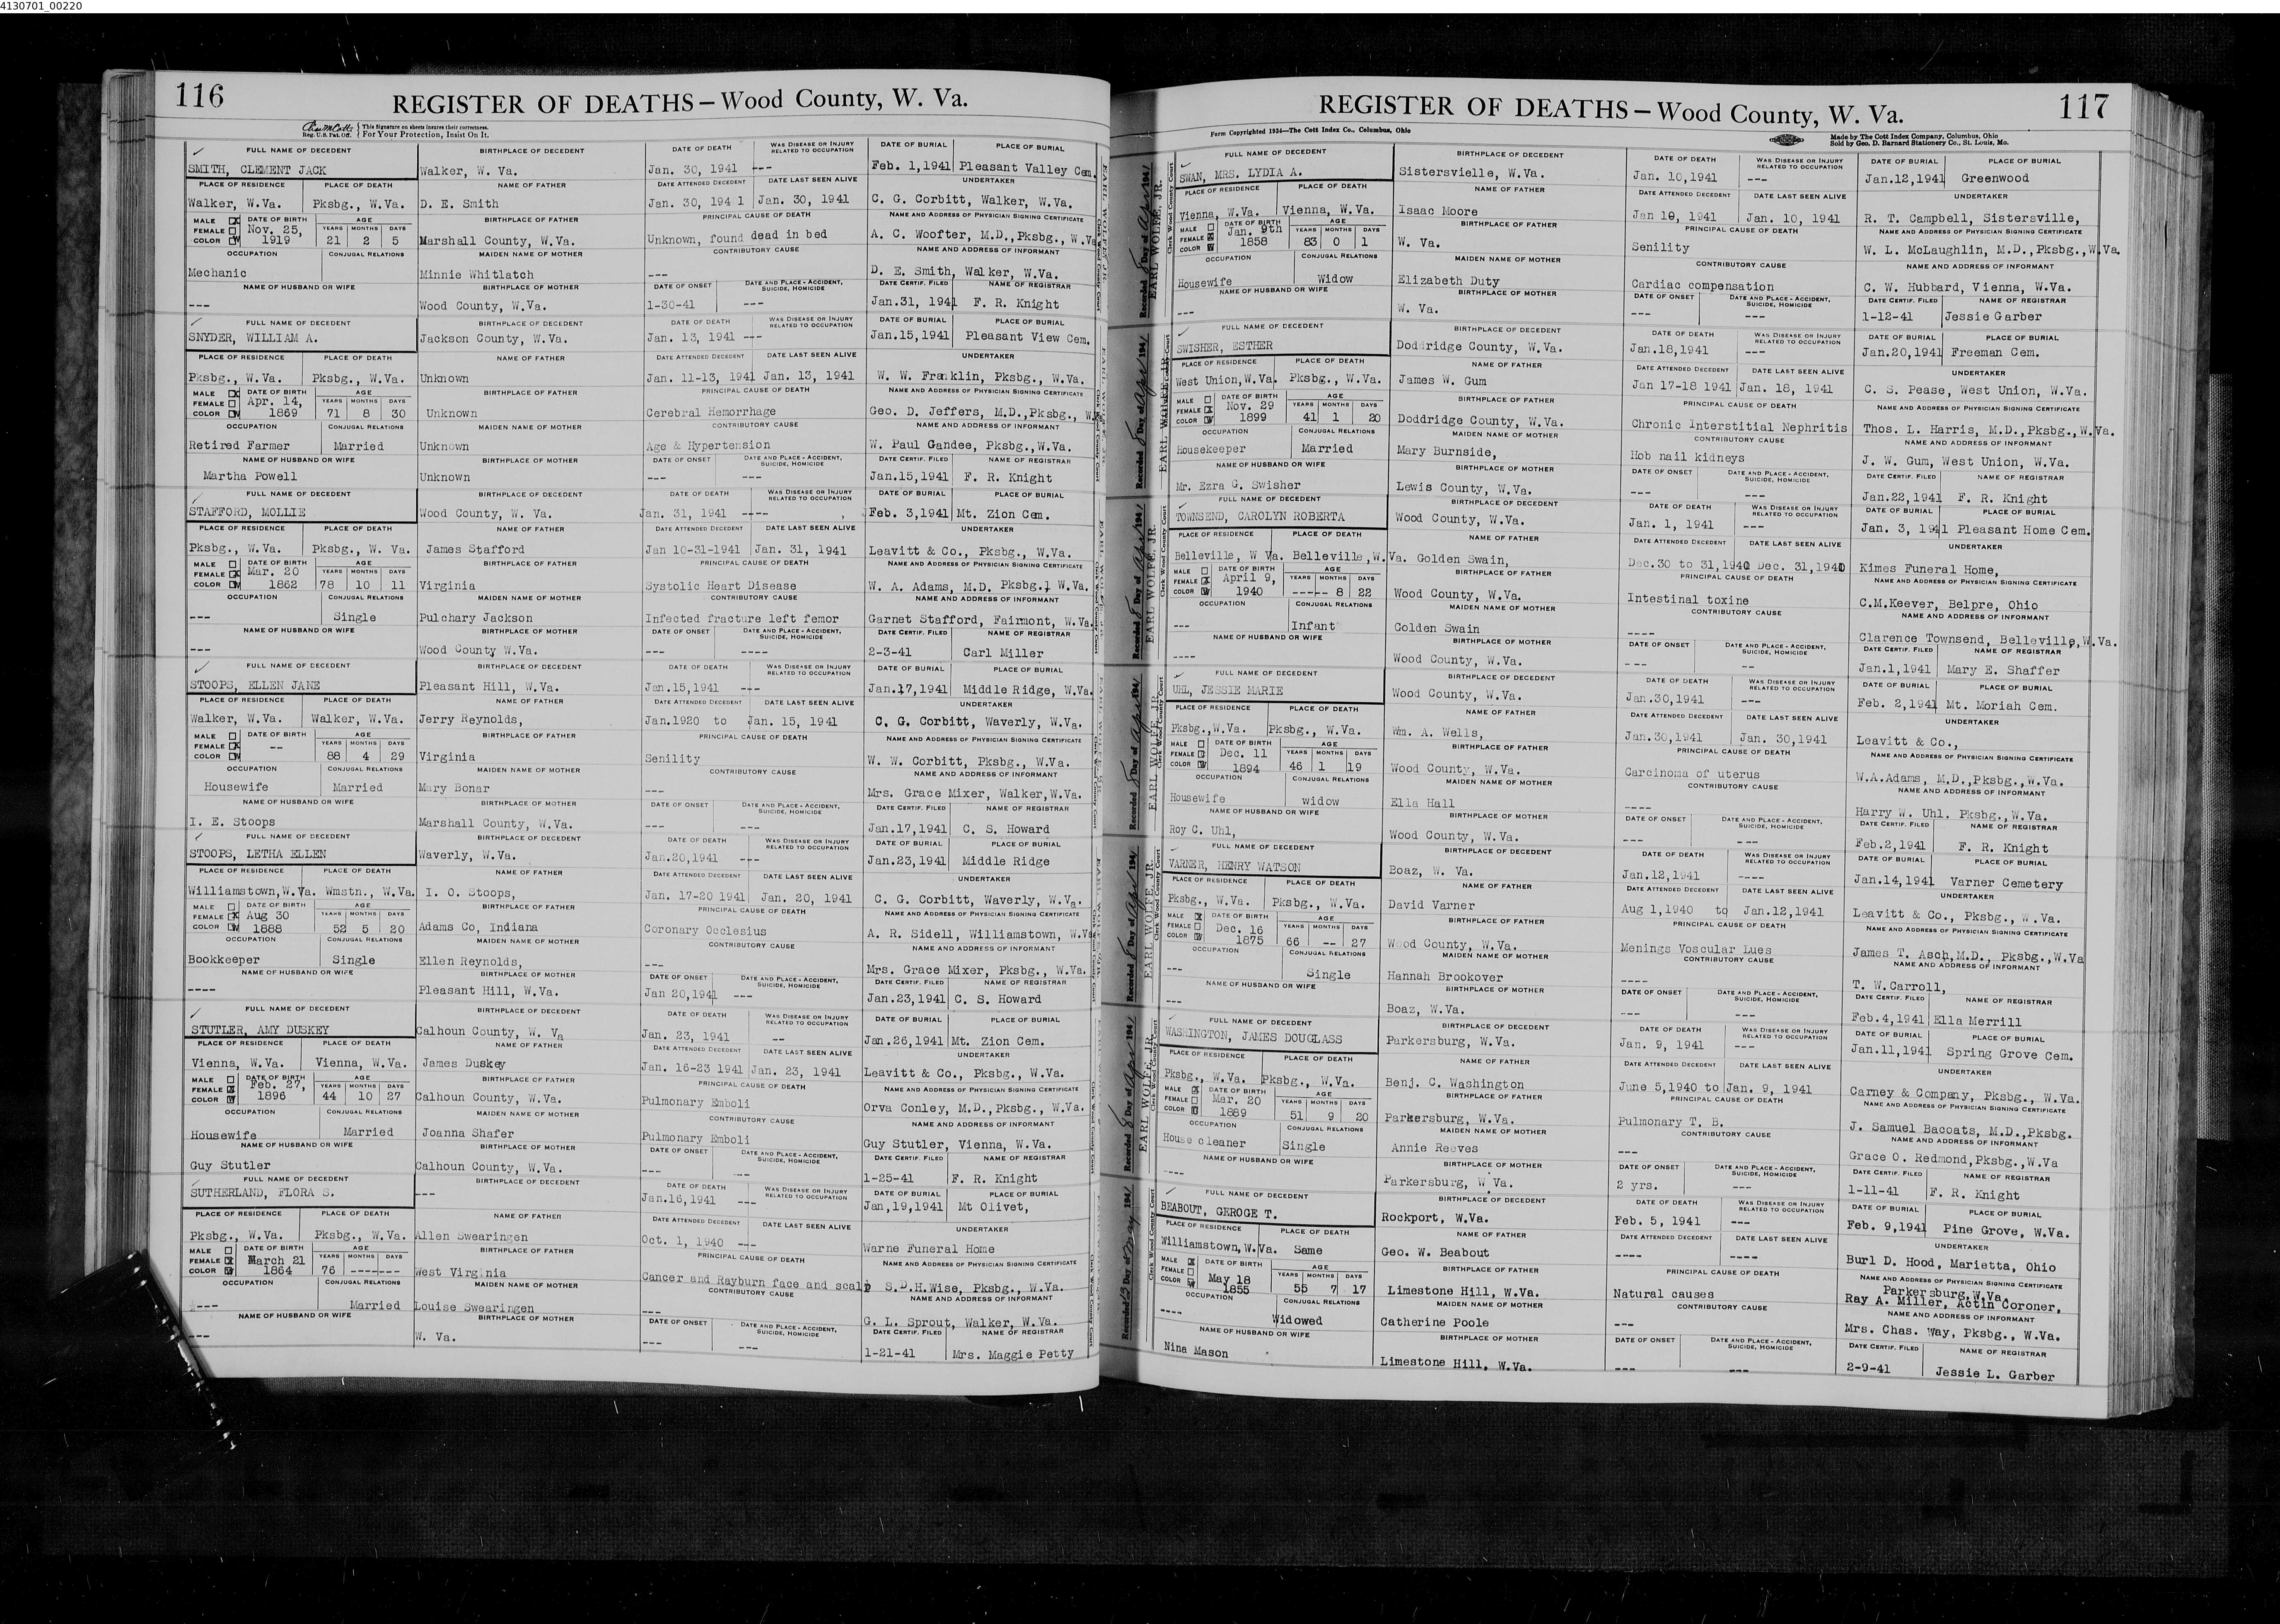 4130701_00220
116
REGISTER OF DEATHS — Wood County, W. Va.
Reg. U.S. Pat. Off. This Signature on sheets insures their correctness.
For Your Protection, Insist On It.
FULL NAME OF DECEDENT BIRTHPLACE OF DECEDENT DATE OF DEATH WAS DISEASE OR INJURY RELATED TO OCCUPATION DATE OF BURIAL PLACE OF BURIAL
SMITH, CLEMENT JACK Walker, W. Va. Jan. 30, 1941 --- Feb. 1,1941 Pleasant Valley Cem.
PLACE OF RESIDENCE PLACE OF DEATH NAME OF FATHER DATE ATTENDED DECEDENT DATE LAST SEEN ALIVE UNDERTAKER
Walker, W.Va. Pksbg., W.Va. D. E. Smith Jan. 30, 1941 Jan. 30, 1941 C. G. Corbitt, Walker, W.Va.
MALE X FEMALE COLOR W DATE OF BIRTH AGE YEARS MONTHS DAYS BIRTHPLACE OF FATHER PRINCIPAL CAUSE OF DEATH NAME AND ADDRESS OF PHYSICIAN SIGNING CERTIFICATE
Nov. 25, 1919 21 2 5 Marshall County, W.Va. Unknown, found dead in bed A. C. Woofter, M.D.,Pksbg., W.Va
OCCUPATION CONJUGAL RELATIONS MAIDEN NAME OF MOTHER CONTRIBUTORY CAUSE NAME AND ADDRESS OF INFORMANT
Mechanic Minnie Whitlatch --- D. E. Smith, Walker, W.Va.
NAME OF HUSBAND OR WIFE BIRTHPLACE OF MOTHER DATE OF ONSET DATE AND PLACE - ACCIDENT, SUICIDE, HOMICIDE DATE CERTIF. FILED NAME OF REGISTRAR
--- Wood County, W.Va. 1-30-41 --- Jan.31, 1941 F. R. Knight
FULL NAME OF DECEDENT BIRTHPLACE OF DECEDENT DATE OF DEATH WAS DISEASE OR INJURY RELATED TO OCCUPATION DATE OF BURIAL PLACE OF BURIAL
SNYDER, WILLIAM A. Jackson County, W.Va. Jan. 13, 1941 --- Jan.15,1941 Pleasant View Cem.
PLACE OF RESIDENCE PLACE OF DEATH NAME OF FATHER DATE ATTENDED DECEDENT DATE LAST SEEN ALIVE UNDERTAKER
Pksbg., W.Va. Pksbg., W.Va. Unknown Jan. 11-13, 1941 Jan. 13, 1941 W. W. Franklin, Pksbg., W.Va.
MALE X FEMALE COLOR W DATE OF BIRTH AGE YEARS MONTHS DAYS BIRTHPLACE OF FATHER PRINCIPAL CAUSE OF DEATH NAME AND ADDRESS OF PHYSICIAN SIGNING CERTIFICATE
Apr. 14, 1869 71 8 30 Unknown Cerebral Hemorrhage Geo. D. Jeffers, M.D.,Pksbg., W.
OCCUPATION CONJUGAL RELATIONS MAIDEN NAME OF MOTHER CONTRIBUTORY CAUSE NAME AND ADDRESS OF INFORMANT
Retired Farmer Married Unknown Age & Hypertension W. Paul Gandee, Pksbg.,W.Va.
NAME OF HUSBAND OR WIFE BIRTHPLACE OF MOTHER DATE OF ONSET DATE AND PLACE - ACCIDENT, SUICIDE, HOMICIDE DATE CERTIF. FILED NAME OF REGISTRAR
Martha Powell Unknown --- --- Jan.15,1941 F. R. Knight
FULL NAME OF DECEDENT BIRTHPLACE OF DECEDENT DATE OF DEATH WAS DISEASE OR INJURY RELATED TO OCCUPATION DATE OF BURIAL PLACE OF BURIAL
STAFFORD, MOLLIE Wood County, W. Va. Jan. 31, 1941 ---- Feb. 3,1941 Mt. Zion Cem.
PLACE OF RESIDENCE PLACE OF DEATH NAME OF FATHER DATE ATTENDED DECEDENT DATE LAST SEEN ALIVE UNDERTAKER
Pksbg., W.Va. Pksbg., W. Va. James Stafford Jan 10-31-1941 Jan. 31, 1941 Leavitt & Co., Pksbg., W.Va.
MALE FEMALE X COLOR W DATE OF BIRTH AGE YEARS MONTHS DAYS BIRTHPLACE OF FATHER PRINCIPAL CAUSE OF DEATH NAME AND ADDRESS OF PHYSICIAN SIGNING CERTIFICATE
Mar. 20 1862 78 10 11 Virginia Systolic Heart Disease W. A. Adams, M.D. Pksbg., W.Va.
OCCUPATION CONJUGAL RELATIONS MAIDEN NAME OF MOTHER CONTRIBUTORY CAUSE NAME AND ADDRESS OF INFORMANT
--- Single Pulchary Jackson Infected fracture left femor Garnet Stafford, Fairmont, W.Va.
NAME OF HUSBAND OR WIFE BIRTHPLACE OF MOTHER DATE OF ONSET DATE AND PLACE - ACCIDENT, SUICIDE, HOMICIDE DATE CERTIF. FILED NAME OF REGISTRAR
--- Wood County W.Va. --- ---- 2-3-41 Carl Miller
FULL NAME OF DECEDENT BIRTHPLACE OF DECEDENT DATE OF DEATH WAS DISEASE OR INJURY RELATED TO OCCUPATION DATE OF BURIAL PLACE OF BURIAL
STOOPS, ELLEN JANE Pleasant Hill, W.Va. Jan.15,1941 --- Jan.17,1941 Middle Ridge, W.Va.
PLACE OF RESIDENCE PLACE OF DEATH NAME OF FATHER DATE ATTENDED DECEDENT DATE LAST SEEN ALIVE UNDERTAKER
Walker, W.Va. Walker, W.Va. Jerry Reynolds, Jan.1920 to Jan. 15, 1941 C. G. Corbitt, Waverly, W.Va.
MALE FEMALE X COLOR W DATE OF BIRTH AGE YEARS MONTHS DAYS BIRTHPLACE OF FATHER PRINCIPAL CAUSE OF DEATH NAME AND ADDRESS OF PHYSICIAN SIGNING CERTIFICATE
-- 88 4 29 Virginia Senility W. W. Corbitt, Pksbg., W.Va.
OCCUPATION CONJUGAL RELATIONS MAIDEN NAME OF MOTHER CONTRIBUTORY CAUSE NAME AND ADDRESS OF INFORMANT
Housewife Married Mary Bonar --- Mrs. Grace Mixer, Walker,W.Va.
NAME OF HUSBAND OR WIFE BIRTHPLACE OF MOTHER DATE OF ONSET DATE AND PLACE - ACCIDENT, SUICIDE, HOMICIDE DATE CERTIF. FILED NAME OF REGISTRAR
I. E. Stoops Marshall County, W.Va. --- --- Jan.17,1941 C. S. Howard
FULL NAME OF DECEDENT BIRTHPLACE OF DECEDENT DATE OF DEATH WAS DISEASE OR INJURY RELATED TO OCCUPATION DATE OF BURIAL PLACE OF BURIAL
STOOPS, LETHA ELLEN Waverly, W.Va. Jan.20,1941 --- Jan.23,1941 Middle Ridge
PLACE OF RESIDENCE PLACE OF DEATH NAME OF FATHER DATE ATTENDED DECEDENT DATE LAST SEEN ALIVE UNDERTAKER
Williamstown,W.Va. Wmstn., W.Va. I. O. Stoops, Jan. 17-20 1941 Jan. 20, 1941 C. G. Corbitt, Waverly, W.Va.
MALE FEMALE X COLOR W DATE OF BIRTH AGE YEARS MONTHS DAYS BIRTHPLACE OF FATHER PRINCIPAL CAUSE OF DEATH NAME AND ADDRESS OF PHYSICIAN SIGNING CERTIFICATE
Aug 30 1888 52 5 20 Adams Co, Indiana Coronary Occlesius A. R. Sidell, Williamstown, W.Va
OCCUPATION CONJUGAL RELATIONS MAIDEN NAME OF MOTHER CONTRIBUTORY CAUSE NAME AND ADDRESS OF INFORMANT
Bookkeeper Single Ellen Reynolds, --- Mrs. Grace Mixer, Pksbg., W.Va.
NAME OF HUSBAND OR WIFE BIRTHPLACE OF MOTHER DATE OF ONSET DATE AND PLACE - ACCIDENT, SUICIDE, HOMICIDE DATE CERTIF. FILED NAME OF REGISTRAR
---- Pleasant Hill, W.Va. Jan 20,1941 --- Jan.23,1941 C. S. Howard
FULL NAME OF DECEDENT BIRTHPLACE OF DECEDENT DATE OF DEATH WAS DISEASE OR INJURY RELATED TO OCCUPATION DATE OF BURIAL PLACE OF BURIAL
STUTLER, AMY DUSKEY Calhoun County, W. Va Jan. 23, 1941 -- Jan.26,1941 Mt. Zion Cem.
PLACE OF RESIDENCE PLACE OF DEATH NAME OF FATHER DATE ATTENDED DECEDENT DATE LAST SEEN ALIVE UNDERTAKER
Vienna, W.Va. Vienna, W.Va. James Duskey Jan. 16-23 1941 Jan. 23, 1941 Leavitt & Co., Pksbg., W.Va.
MALE FEMALE X COLOR W DATE OF BIRTH AGE YEARS MONTHS DAYS BIRTHPLACE OF FATHER PRINCIPAL CAUSE OF DEATH NAME AND ADDRESS OF PHYSICIAN SIGNING CERTIFICATE
Feb. 27, 1896 44 10 27 Calhoun County, W.Va. Pulmonary Emboli Orva Conley, M.D.,Pksbg., W.Va.
OCCUPATION CONJUGAL RELATIONS MAIDEN NAME OF MOTHER CONTRIBUTORY CAUSE NAME AND ADDRESS OF INFORMANT
Housewife Married Joanna Shafer Pulmonary Emboli Guy Stutler, Vienna, W.Va.
NAME OF HUSBAND OR WIFE BIRTHPLACE OF MOTHER DATE OF ONSET DATE AND PLACE - ACCIDENT, SUICIDE, HOMICIDE DATE CERTIF. FILED NAME OF REGISTRAR
Guy Stutler Calhoun County, W.Va. --- --- 1-25-41 F. R. Knight
FULL NAME OF DECEDENT BIRTHPLACE OF DECEDENT DATE OF DEATH WAS DISEASE OR INJURY RELATED TO OCCUPATION DATE OF BURIAL PLACE OF BURIAL
SUTHERLAND, FLORA S. --- Jan.16,1941 --- Jan,19,1941 Mt Olivet,
PLACE OF RESIDENCE PLACE OF DEATH NAME OF FATHER DATE ATTENDED DECEDENT DATE LAST SEEN ALIVE UNDERTAKER
Pksbg., W.Va. Pksbg., W.Va. Allen Swearingen Oct. 1, 1940 --- Warne Funeral Home
MALE FEMALE X COLOR W DATE OF BIRTH AGE YEARS MONTHS DAYS BIRTHPLACE OF FATHER PRINCIPAL CAUSE OF DEATH NAME AND ADDRESS OF PHYSICIAN SIGNING CERTIFICATE
March 21 1864 76 ------- West Virginia Cancer and Rayburn face and scalp S.D.H.Wise, Pksbg., W.Va.
OCCUPATION CONJUGAL RELATIONS MAIDEN NAME OF MOTHER CONTRIBUTORY CAUSE NAME AND ADDRESS OF INFORMANT
---- Married Louise Swearingen --- G. L. Sprout, Walker, W.Va.
NAME OF HUSBAND OR WIFE BIRTHPLACE OF MOTHER DATE OF ONSET DATE AND PLACE - ACCIDENT, SUICIDE, HOMICIDE DATE CERTIF. FILED NAME OF REGISTRAR
--- W. Va. --- --- 1-21-41 Mrs. Maggie Petty
117
REGISTER OF DEATHS — Wood County, W. Va.
Form Copyrighted 1934—The Cott Index Co., Columbus, Ohio
Made by The Cott Index Company, Columbus, Ohio
Sold by Geo. D. Barnard Stationery Co., St. Louis, Mo.
Recorded 8 Day of Apr 1941
EARL WOLFE, JR.
Clerk Wood County Court
FULL NAME OF DECEDENT BIRTHPLACE OF DECEDENT DATE OF DEATH WAS DISEASE OR INJURY RELATED TO OCCUPATION DATE OF BURIAL PLACE OF BURIAL
SWAN, MRS. LYDIA A. Sistersvielle, W.Va. Jan. 10,1941 --- Jan.12,1941 Greenwood
PLACE OF RESIDENCE PLACE OF DEATH NAME OF FATHER DATE ATTENDED DECEDENT DATE LAST SEEN ALIVE UNDERTAKER
Vienna, W.Va. Vienna, W.Va. Isaac Moore Jan 10, 1941 Jan. 10, 1941 R. T. Campbell, Sistersville,
MALE FEMALE X COLOR W DATE OF BIRTH AGE YEARS MONTHS DAYS BIRTHPLACE OF FATHER PRINCIPAL CAUSE OF DEATH NAME AND ADDRESS OF PHYSICIAN SIGNING CERTIFICATE
Jan. 9th 1858 83 0 1 W. Va. Senility W. L. McLaughlin, M.D.,Pksbg.,W.Va.
OCCUPATION CONJUGAL RELATIONS MAIDEN NAME OF MOTHER CONTRIBUTORY CAUSE NAME AND ADDRESS OF INFORMANT
Housewife Widow Elizabeth Duty Cardiac compensation C. W. Hubbard, Vienna, W.Va.
NAME OF HUSBAND OR WIFE BIRTHPLACE OF MOTHER DATE OF ONSET DATE AND PLACE - ACCIDENT, SUICIDE, HOMICIDE DATE CERTIF. FILED NAME OF REGISTRAR
--- W. Va. --- --- 1-12-41 Jessie Garber
Recorded 8 Day of Apr 1941
EARL WOLFE, JR.
FULL NAME OF DECEDENT BIRTHPLACE OF DECEDENT DATE OF DEATH WAS DISEASE OR INJURY RELATED TO OCCUPATION DATE OF BURIAL PLACE OF BURIAL
SWISHER, ESTHER Doddridge County, W.Va. Jan.18,1941 --- Jan.20,1941 Freeman Cem.
PLACE OF RESIDENCE PLACE OF DEATH NAME OF FATHER DATE ATTENDED DECEDENT DATE LAST SEEN ALIVE UNDERTAKER
West Union,W.Va. Pksbg., W.Va. James W. Gum Jan 17-18 1941 Jan. 18, 1941 C. S. Pease, West Union, W.Va.
MALE FEMALE X COLOR W DATE OF BIRTH AGE YEARS MONTHS DAYS BIRTHPLACE OF FATHER PRINCIPAL CAUSE OF DEATH NAME AND ADDRESS OF PHYSICIAN SIGNING CERTIFICATE
Nov. 29 1899 41 1 20 Doddridge County, W.Va. Chronic Interstitial Nephritis Thos. L. Harris, M.D.,Pksbg.,W.Va.
OCCUPATION CONJUGAL RELATIONS MAIDEN NAME OF MOTHER CONTRIBUTORY CAUSE NAME AND ADDRESS OF INFORMANT
Housekeeper Married Mary Burnside, Hob nail kidneys J. W. Gum, West Union, W.Va.
NAME OF HUSBAND OR WIFE BIRTHPLACE OF MOTHER DATE OF ONSET DATE AND PLACE - ACCIDENT, SUICIDE, HOMICIDE DATE CERTIF. FILED NAME OF REGISTRAR
Mr. Ezra G. Swisher Lewis County, W.Va. --- --- Jan.22,1941 F. R. Knight
Recorded 8 Day of Apr 1941
EARL WOLFE, JR.
Clerk Wood County Court
FULL NAME OF DECEDENT BIRTHPLACE OF DECEDENT DATE OF DEATH WAS DISEASE OR INJURY RELATED TO OCCUPATION DATE OF BURIAL PLACE OF BURIAL
TOWNSEND, CAROLYN ROBERTA Wood County, W.Va. Jan. 1, 1941 --- Jan. 3, 1941 Pleasant Home Cem.
PLACE OF RESIDENCE PLACE OF DEATH NAME OF FATHER DATE ATTENDED DECEDENT DATE LAST SEEN ALIVE UNDERTAKER
Belleville, W Va. Belleville,W.Va. Golden Swain, Dec.30 to 31,1940 Dec. 31,1940 Kimes Funeral Home,
MALE FEMALE X COLOR W DATE OF BIRTH AGE YEARS MONTHS DAYS BIRTHPLACE OF FATHER PRINCIPAL CAUSE OF DEATH NAME AND ADDRESS OF PHYSICIAN SIGNING CERTIFICATE
April 9, 1940 ----- 8 22 Wood County, W.Va. Intestinal toxine C.M.Keever, Belpre, Ohio
OCCUPATION CONJUGAL RELATIONS MAIDEN NAME OF MOTHER CONTRIBUTORY CAUSE NAME AND ADDRESS OF INFORMANT
--- Infant Golden Swain ---- Clarence Townsend, Belleville,W.Va.
NAME OF HUSBAND OR WIFE BIRTHPLACE OF MOTHER DATE OF ONSET DATE AND PLACE - ACCIDENT, SUICIDE, HOMICIDE DATE CERTIF. FILED NAME OF REGISTRAR
---- Wood County, W.Va. --- -- Jan.1,1941 Mary E. Shaffer
Recorded 8 Day of Apr 1941
EARL WOLFE, JR.
Clerk Wood County Court
FULL NAME OF DECEDENT BIRTHPLACE OF DECEDENT DATE OF DEATH WAS DISEASE OR INJURY RELATED TO OCCUPATION DATE OF BURIAL PLACE OF BURIAL
UHL, JESSIE MARIE Wood County, W.Va. Jan.30,1941 --- Feb. 2,1941 Mt. Moriah Cem.
PLACE OF RESIDENCE PLACE OF DEATH NAME OF FATHER DATE ATTENDED DECEDENT DATE LAST SEEN ALIVE UNDERTAKER
Pksbg.,W.Va. Pksbg., W.Va. Wm. A. Wells, Jan.30,1941 Jan. 30,1941 Leavitt & Co.,
MALE FEMALE X COLOR W DATE OF BIRTH AGE YEARS MONTHS DAYS BIRTHPLACE OF FATHER PRINCIPAL CAUSE OF DEATH NAME AND ADDRESS OF PHYSICIAN SIGNING CERTIFICATE
Dec. 11 1894 46 1 19 Wood County, W.Va. Carcinoma of uterus W.A.Adams, M.D.,Pksbg.,W.Va.
OCCUPATION CONJUGAL RELATIONS MAIDEN NAME OF MOTHER CONTRIBUTORY CAUSE NAME AND ADDRESS OF INFORMANT
Housewife widow Ella Hall ---- Harry W. Uhl. Pksbg.,W.Va.
NAME OF HUSBAND OR WIFE BIRTHPLACE OF MOTHER DATE OF ONSET DATE AND PLACE - ACCIDENT, SUICIDE, HOMICIDE DATE CERTIF. FILED NAME OF REGISTRAR
Roy C. Uhl, Wood County, W.Va. --- --- Feb.2,1941 F. R. Knight
Recorded 8 Day of Apr 1941
EARL WOLFE, JR.
Clerk Wood County Court
FULL NAME OF DECEDENT BIRTHPLACE OF DECEDENT DATE OF DEATH WAS DISEASE OR INJURY RELATED TO OCCUPATION DATE OF BURIAL PLACE OF BURIAL
VARNER, HENRY WATSON Boaz, W. Va. Jan.12,1941 ---- Jan.14,1941 Varner Cemetery
PLACE OF RESIDENCE PLACE OF DEATH NAME OF FATHER DATE ATTENDED DECEDENT DATE LAST SEEN ALIVE UNDERTAKER
Pksbg., W.Va. Pksbg., W.Va. David Varner Aug 1,1940 to Jan.12,1941 Leavitt & Co., Pksbg., W.Va.
MALE X FEMALE COLOR W DATE OF BIRTH AGE YEARS MONTHS DAYS BIRTHPLACE OF FATHER PRINCIPAL CAUSE OF DEATH NAME AND ADDRESS OF PHYSICIAN SIGNING CERTIFICATE
Dec. 16 1875 66 -- 27 Wood County, W.Va. Menings Voscular Lues James T. Asch,M.D., Pksbg.,W.Va
OCCUPATION CONJUGAL RELATIONS MAIDEN NAME OF MOTHER CONTRIBUTORY CAUSE NAME AND ADDRESS OF INFORMANT
--- Single Hannah Brookover ---- T. W.Carroll,
NAME OF HUSBAND OR WIFE BIRTHPLACE OF MOTHER DATE OF ONSET DATE AND PLACE - ACCIDENT, SUICIDE, HOMICIDE DATE CERTIF. FILED NAME OF REGISTRAR
--- Boaz, W.Va. --- --- Feb.4,1941 Ella Merrill
Recorded 8 Day of Apr 1941
EARL WOLFE, JR.
Clerk Wood County Court
FULL NAME OF DECEDENT BIRTHPLACE OF DECEDENT DATE OF DEATH WAS DISEASE OR INJURY RELATED TO OCCUPATION DATE OF BURIAL PLACE OF BURIAL
WASHINGTON, JAMES DOUGLASS Parkersburg, W.Va. Jan. 9, 1941 --- Jan.11,1941 Spring Grove Cem.
PLACE OF RESIDENCE PLACE OF DEATH NAME OF FATHER DATE ATTENDED DECEDENT DATE LAST SEEN ALIVE UNDERTAKER
Pksbg., W.Va. Pksbg., W.Va. Benj. C. Washington June 5,1940 to Jan. 9, 1941 Carney & Company, Pksbg., W.Va.
MALE X FEMALE COLOR DATE OF BIRTH AGE YEARS MONTHS DAYS BIRTHPLACE OF FATHER PRINCIPAL CAUSE OF DEATH NAME AND ADDRESS OF PHYSICIAN SIGNING CERTIFICATE
Mar. 20 1889 51 9 20 Parkersburg, W.Va. Pulmonary T. B. J. Samuel Bacoats, M.D.,Pksbg.
OCCUPATION CONJUGAL RELATIONS MAIDEN NAME OF MOTHER CONTRIBUTORY CAUSE NAME AND ADDRESS OF INFORMANT
House cleaner Single Annie Reeves --- Grace O. Redmond,Pksbg.,W.Va
NAME OF HUSBAND OR WIFE BIRTHPLACE OF MOTHER DATE OF ONSET DATE AND PLACE - ACCIDENT, SUICIDE, HOMICIDE DATE CERTIF. FILED NAME OF REGISTRAR
---- Parkersburg, W Va. 2 yrs. --- 1-11-41 F. R. Knight
Recorded 13 Day of May 1941
Clerk Wood County Court
FULL NAME OF DECEDENT BIRTHPLACE OF DECEDENT DATE OF DEATH WAS DISEASE OR INJURY RELATED TO OCCUPATION DATE OF BURIAL PLACE OF BURIAL
BEABOUT, GEROGE T. Rockport, W.Va. Feb. 5, 1941 --- Feb. 9,1941 Pine Grove, W.Va.
PLACE OF RESIDENCE PLACE OF DEATH NAME OF FATHER DATE ATTENDED DECEDENT DATE LAST SEEN ALIVE UNDERTAKER
Williamstown,W.Va. Same Geo. W. Beabout ---- ---- Burl D. Hood, Marietta, Ohio
MALE X FEMALE COLOR W DATE OF BIRTH AGE YEARS MONTHS DAYS BIRTHPLACE OF FATHER PRINCIPAL CAUSE OF DEATH NAME AND ADDRESS OF PHYSICIAN SIGNING CERTIFICATE
May 18 1855 55 7 17 Limestone Hill, W.Va. Natural causes Parkersburg,W.Va. Ray A. Miller, Actin Coroner,
OCCUPATION CONJUGAL RELATIONS MAIDEN NAME OF MOTHER CONTRIBUTORY CAUSE NAME AND ADDRESS OF INFORMANT
---- Widowed Catherine Poole --- Mrs. Chas. Way, Pksbg., W.Va.
NAME OF HUSBAND OR WIFE BIRTHPLACE OF MOTHER DATE OF ONSET DATE AND PLACE - ACCIDENT, SUICIDE, HOMICIDE DATE CERTIF. FILED NAME OF REGISTRAR
Nina Mason Limestone Hill, W.Va. --- --- 2-9-41 Jessie L. Garber